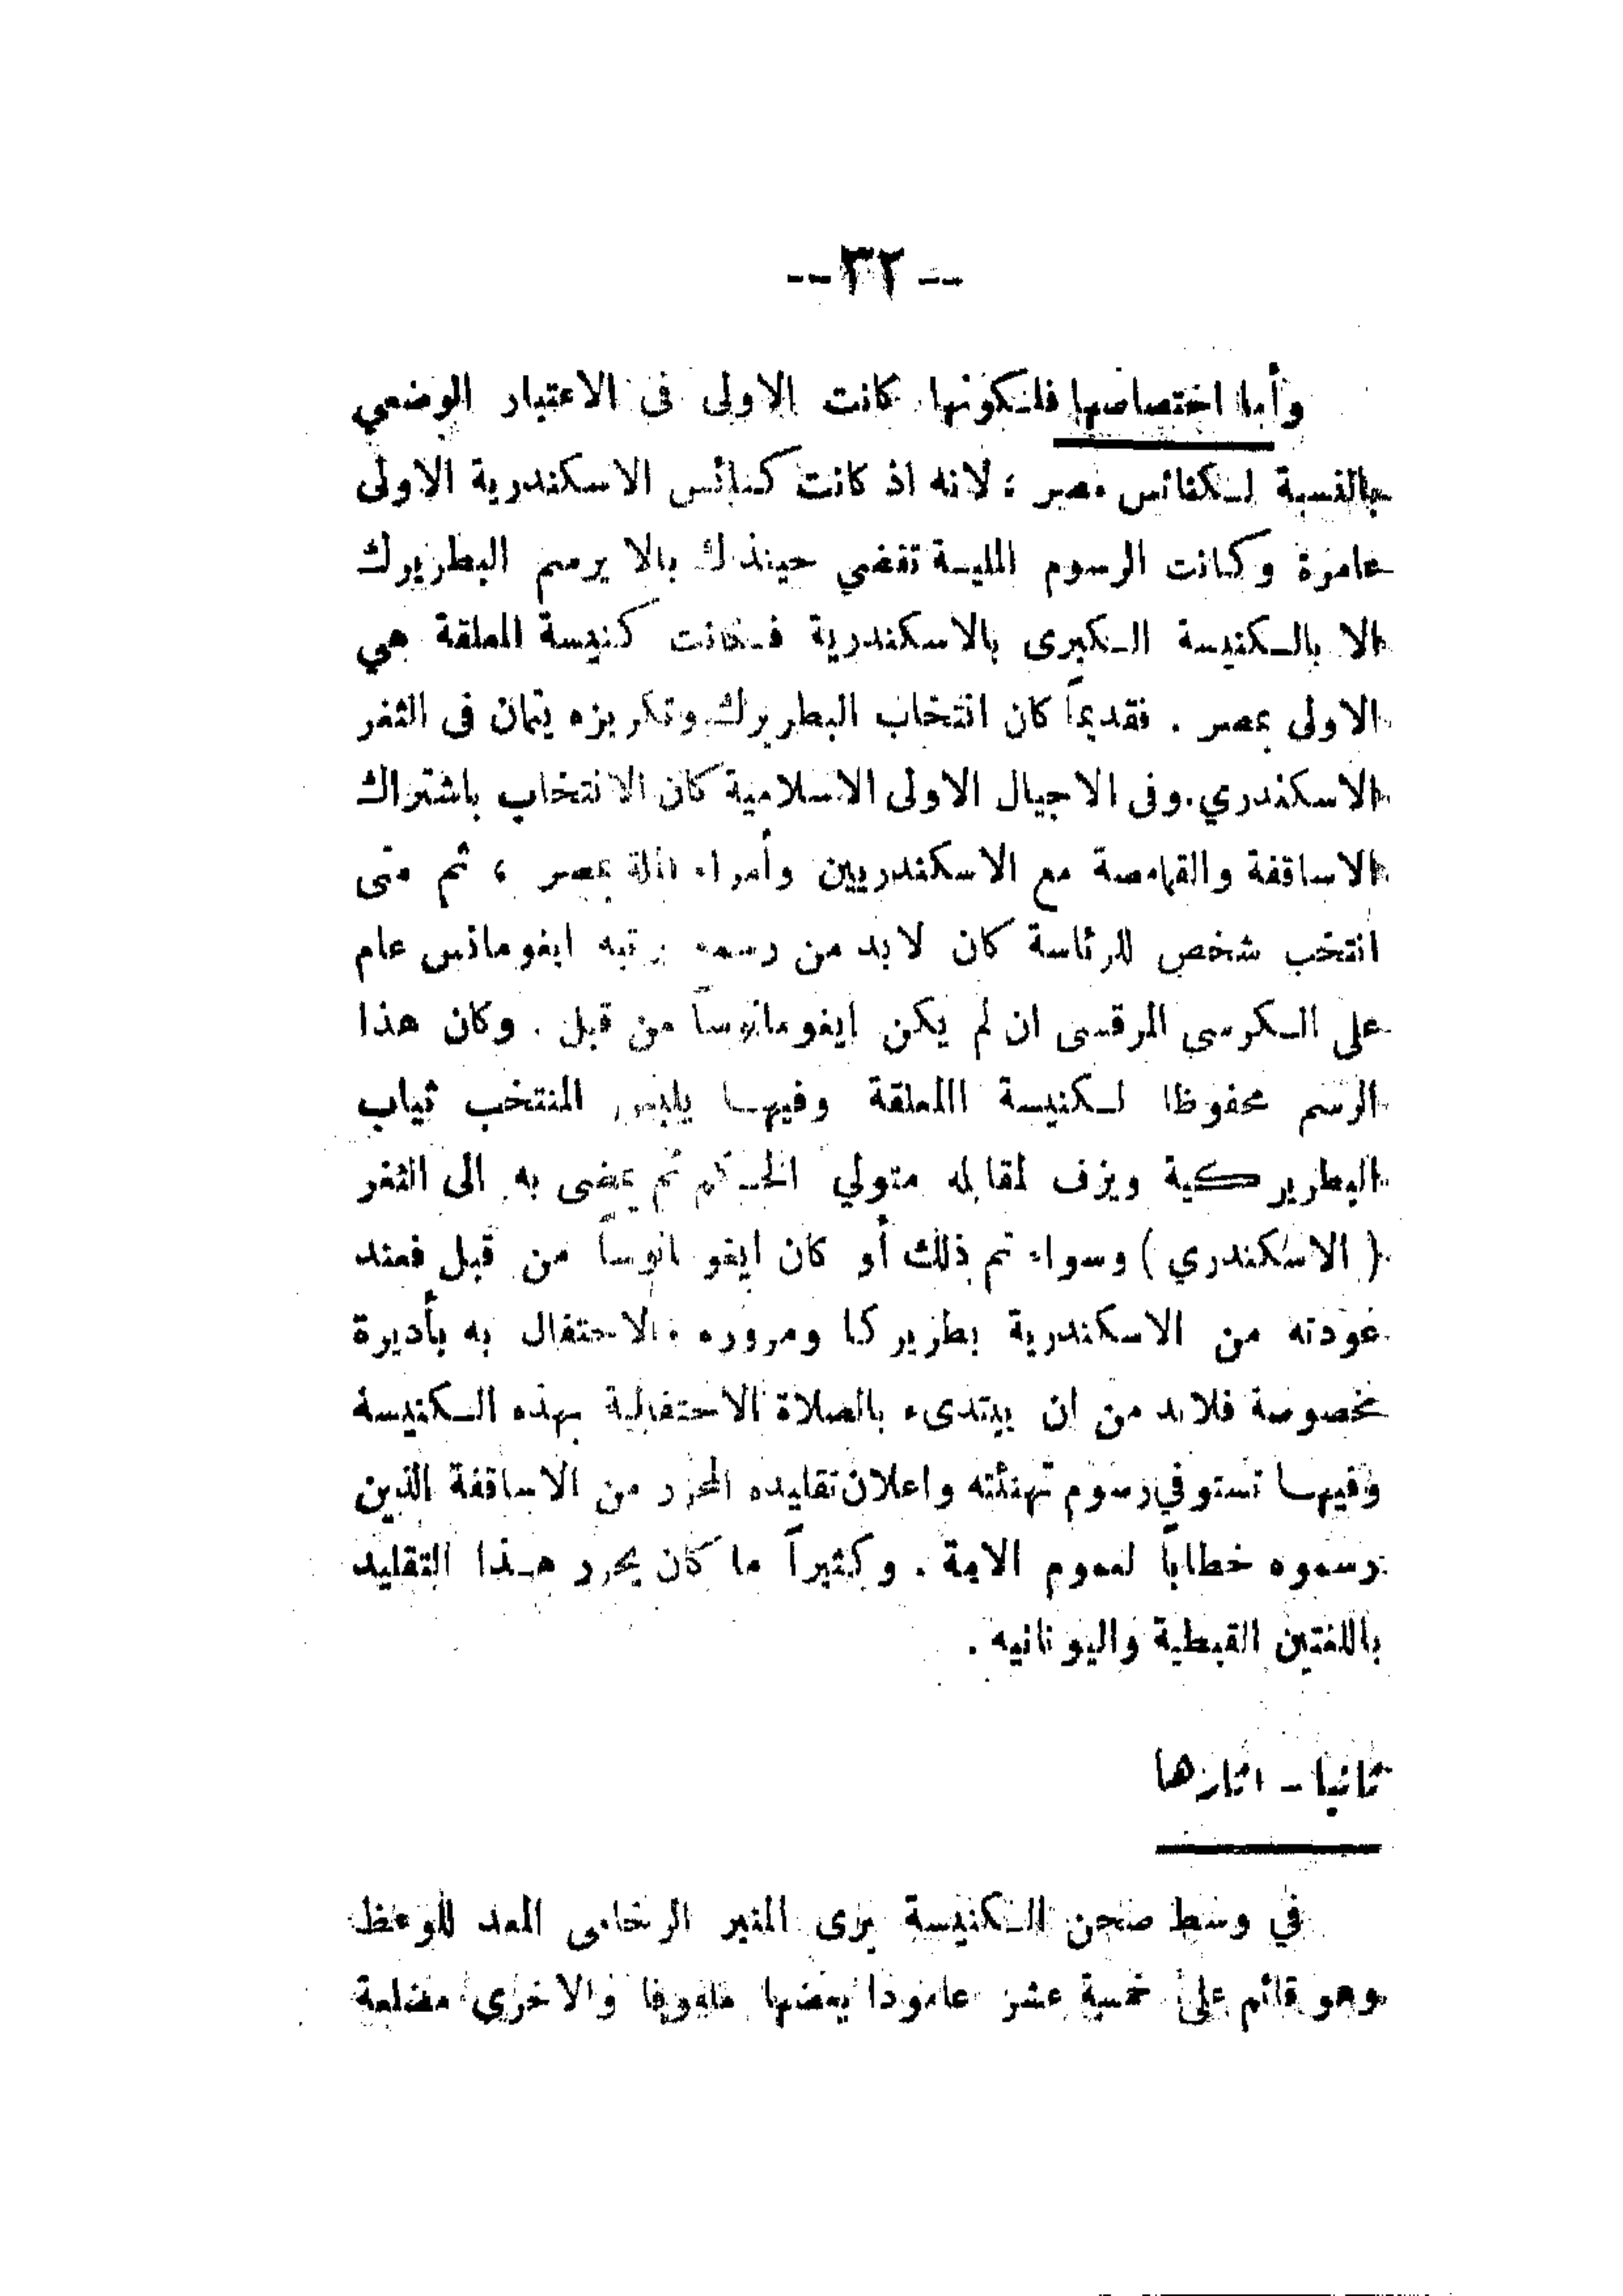 -- ٣٢ --
وأما اختصاصها فلكونها كانت الاولى فى الاعتبار الوضعي
بالنسبة لكنائس مصر ؛ لانه اذ كانت كنائس الاسكندرية الاولى
عامرة وكانت الرسوم الملية تقضي حينذاك بالا يرسم البطريرك
الا بالكنيسة الكبرى بالاسكندرية فكانت كنيسة المعلقة هي
الاولى بمصر . فقديماً كان انتخاب البطريرك وتكريزه يتمان فى الثغر
الاسكندري . وفى الاجيال الاولى الاسلامية كان الانتخاب باشتراك
الاساقفة والقمامصة مع الاسكندريين وأمراء الملة بمصر ، ثم متى
انتخب شخص للرئاسة كان لابد من رسمه برتبه ايغومانس عام
على الكرسى المرقسى ان لم يكن ايغومانوساً من قبل . وكان هذا
الرسم محفوظا لكنيسة االمعلقة وفيها يلبس المنتخب ثياب
البطريركية ويزف لمقابله متولي الحكم ثم يمضى به الى الثغر
( الاسكندري ) وسواء تم ذلك أو كان ايغومانوساً من قبل فعند
عودته من الاسكندرية بطريركا ومروره بالاحتفال به بأديرة
مخصوصة فلابد من ان يبتدىء بالصلاة الاحتفالية بهذه الكنيسة
وفيها تستوفي رسوم تهنئته واعلان تقليده المحرر من الاساقفة الذين
رسموه خطاباً لعموم الامة . وكثيراً ما كان يحرر هذا التقليد
باللغتين القبطية واليونانيه .
ثانيا - اثارها
في وسط صحن الكنيسة يرى المنبر الرخامى المعد للوعظ
وهو قائم على خمسة عشر عامودا بعضها ملفوفا والاخرى مضلعة